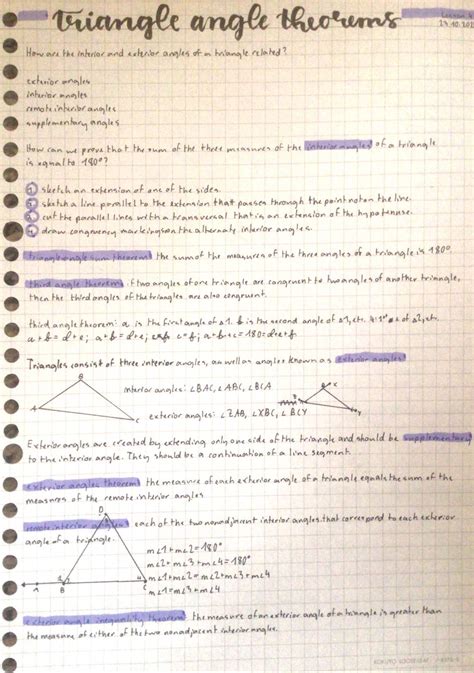 triangle angle theorems
Lesson
How are the interior and exterior angles of a triangle related?
exterior angles
interior angles
remote interior angles
supplementary angles
How can we prove that the sum of the three measures of the interior angles of a triangle
is equal to 180°?
1 sketch an extension of one of the sides.
2 sketch a line parallel to the extension that passes through the point not on the line.
3 cut the parallel lines with a transversal that is an extension of the hypotenuse.
4 draw congruency markings on the alternate interior angles.
triangle angle sum theorem: the sum of the measures of the three angles of a triangle is 180°.
third angle theorem: if two angles of one triangle are congruent to two angles of another triangle,
then the third angles of the triangles are also congruent.
third angle theorem: a is the first angle of Δ1. b is the second angle of Δ1, etc.
a + b = d + e; c = f; a + b + c = 180 = d + e + f
Triangles consist of three interior angles, as well as angles known as exterior angles
B
A
C
interior angles: ∠BAC, ∠ABC, ∠BCA
exterior angles: ∠ZAB, ∠XBC, ∠BCY
B
X
Y
Exterior angles are created by extending only one side of the triangle and should be supplementary
to the interior angle. They should be a continuation of a line segment.
exterior angles theorem: the measure of each exterior angle of a triangle equals the sum of the
measures of the remote interior angles
remote interior angles: each of the two nonadjacent interior angles that correspond to each exterior
angle of a triangle.
D
A
B
C
m∠1 + m∠2 = 180°
m∠2 + m∠3 + m∠4 = 180°
m∠1 + m∠2 = m∠2 + m∠3 + m∠4
m∠1 = m∠3 + m∠4
exterior angle inequality theorem: the measure of an exterior angle of a triangle is greater than
the measure of either of the two nonadjacent interior angles.
KOKUYO LOOSELEAF